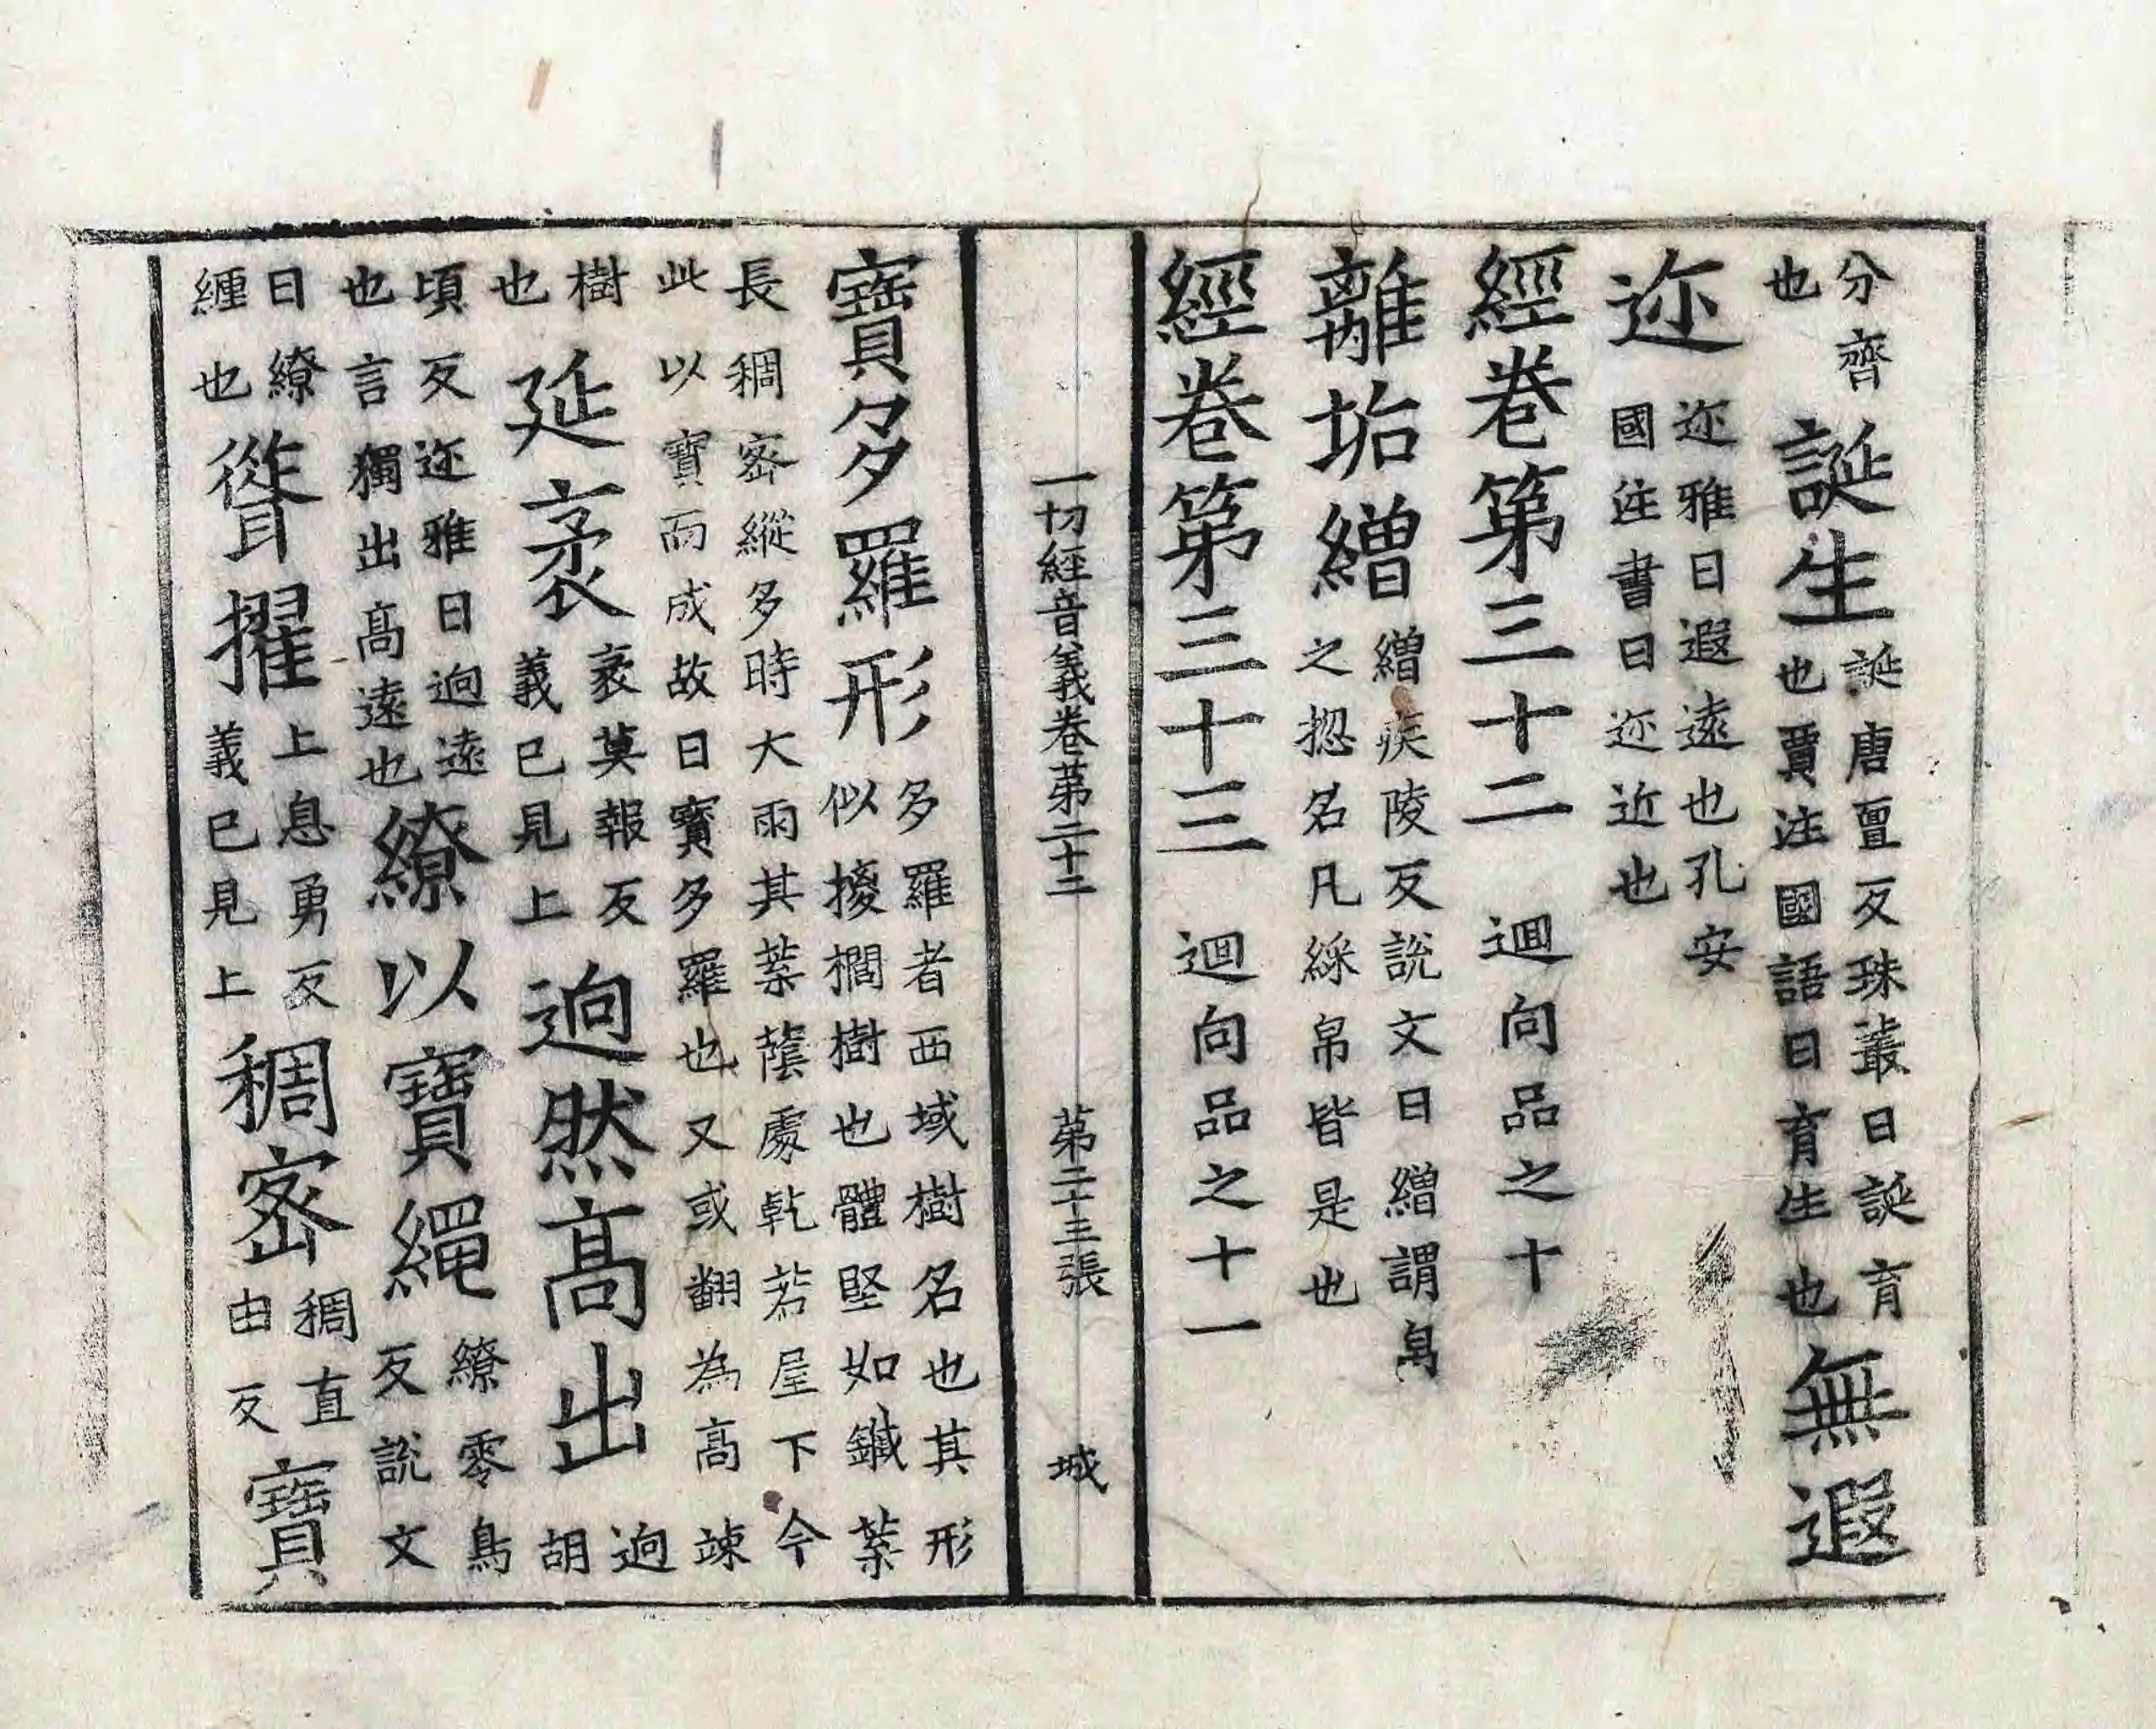 分齊也誕生誕唐亶反珠叢曰誕育也賈注國語曰育生也無遐
迩迩雅曰遐遠也孔安國注書曰迩近也
經卷第三十二 迴向品之十
離垢繒繒疾陵反說文曰繒謂帛之揔名凡綵帛皆是也
經卷第三十三 迴向品之十一
一切經音義卷第二十二 第二十三張 城
寶多羅形多羅者西域樹名也其形似㯶櫚樹也體堅如鐵葉
長稠密縱多時大雨其葉蔭處乾若屋下今此以寶而成故曰寶多羅也又或翻為高竦
樹也延袤袤莫報反義已見上迥然高出迥胡
頃反迩雅曰迥遠也言獨出高遠也繚以寶繩繚零鳥反說文
曰繚纏也聳擢上息勇反義已見上稠密稠直由反寶